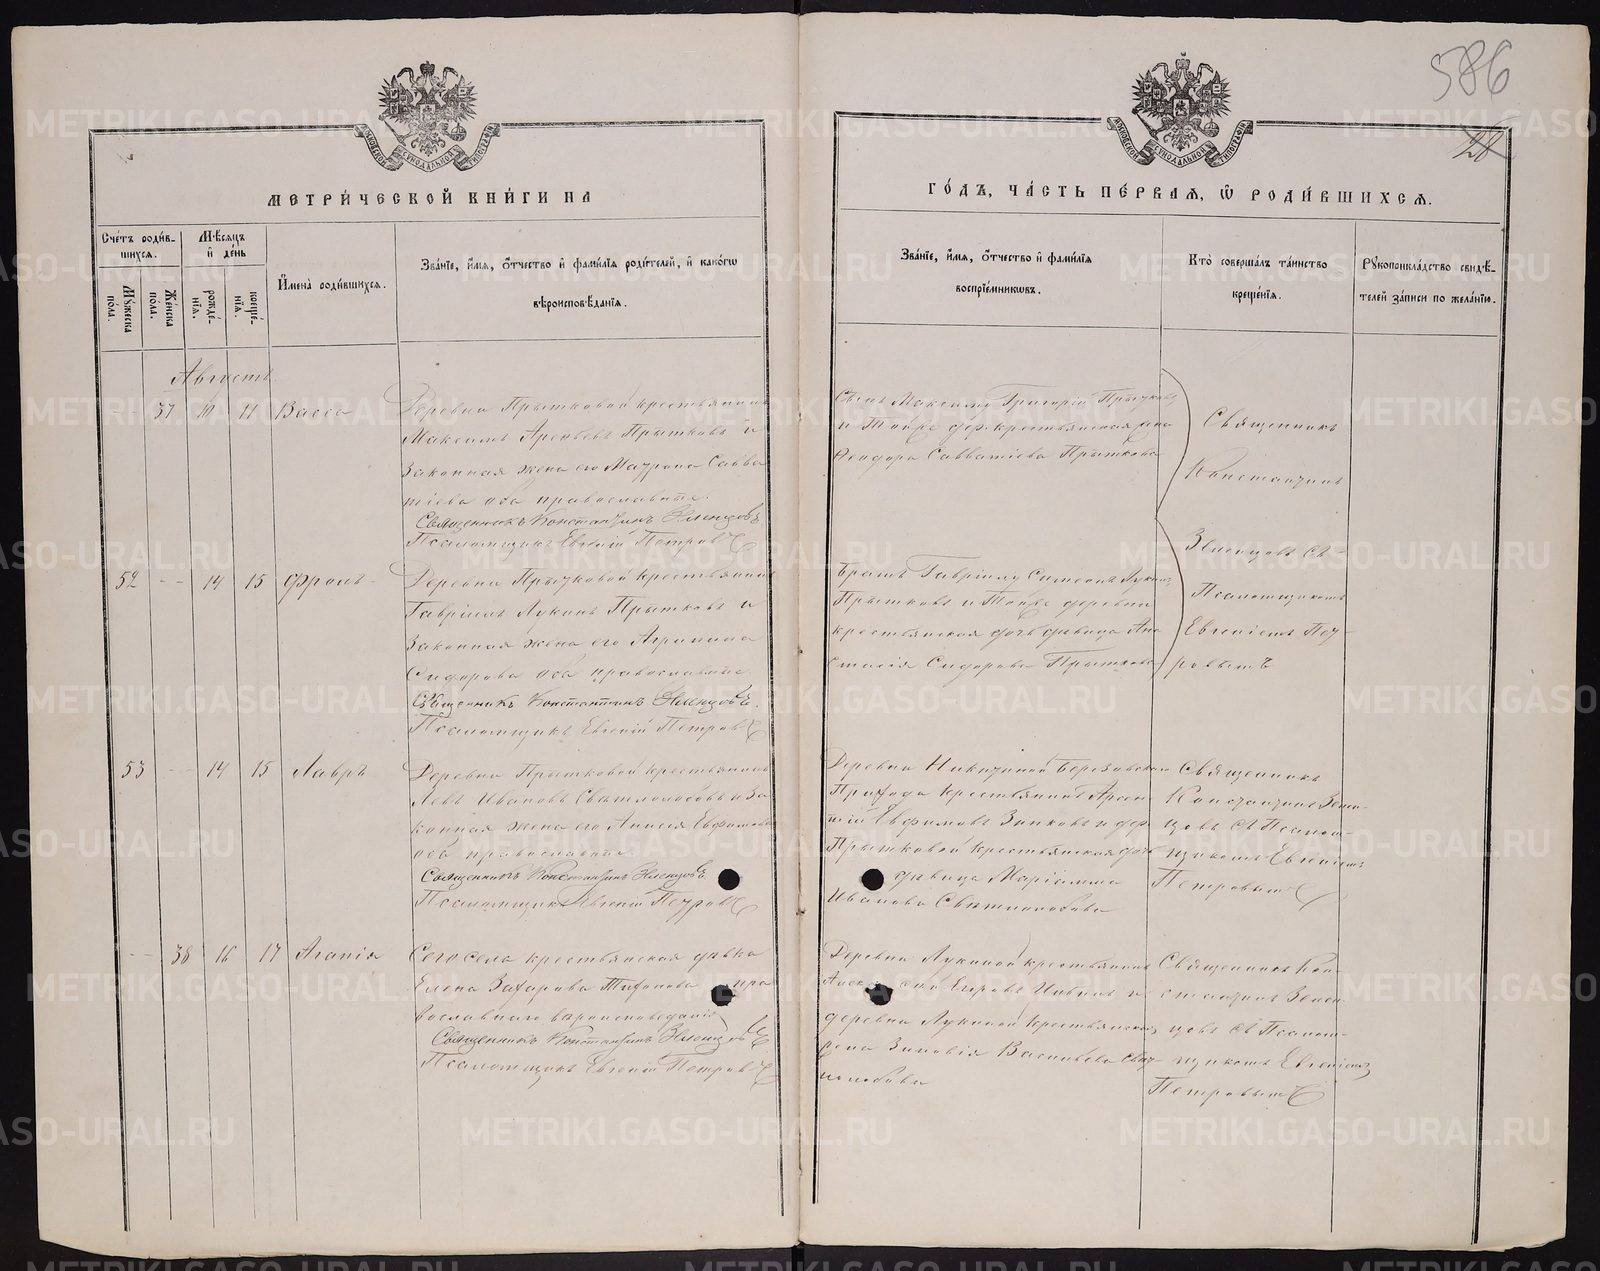 586
28
МЕТРИ́ЧЕСКОЙ КНИ́ГИ НА
ГО́ДЪ, ЧА́СТЬ ПЕ́РВАЯ, Ѿ РОДИ́ВШИХСЯ.
Сче́тъ роди́в-
шихся.
Мѣ́сяцъ
и де́нь
Му́жеска
по́ла.
Же́нска
по́ла.
рожде́-
нія.
креще́-
нія.
Имена̀ роди́вшихся.
Зва́ніе, и́мя, о́тчество и фами́лія роди́телей, и како́гѡ
вѣроисповѣ́данія.
Зва́ніе, и́мя, о́тчество и фами́лія
воспріе́мникѡвъ.
Кто̀ соверша́лъ та́инство
креще́нія.
Рукоприкла́дство свидѣ́-
телей за́писи по жела́нію.
Августъ
37 10 11 Васса
Деревни Прытковой крестьянинъ
Максимъ Арсеньевъ Прытковъ и
законная жена его Матрона Савва
тіева оба православные.
Священникъ Константинъ
Псаломщикъ Евгеній Петровъ
Максиму Григорій Прытковъ
и той же дер. крестьянская
Ѳеодора Савватіева Прыткова
Священникъ
Константинъ
52 14 15 Фролъ
Деревни Прытковой крестьянинъ
Гавріилъ Лукинъ Прытковъ и
законная жена его Агрипина
Сидорова оба православные
Священникъ Константинъ
Псаломщикъ Евгеній Петровъ
Братъ Гавріилу Симеонъ Лукинъ
Прытковъ и той же деревни
крестьянская дочь дѣвица Ана
стасія Сидорова Прыткова
съ
Псаломщикомъ
Евгеніемъ Пет-
ровымъ
53 14 15 Лавръ
Деревни Прытковой крестьянинъ
Левъ Ивановъ Свѣтлолобовъ и за
конная жена его Анисія Евфимова
оба православные.
Священникъ Константинъ
Псаломщикъ Евгеній Петровъ
Деревни Никитиной Березовскаго
Прихода крестьянинъ Арсен
тій Евфимовъ Зинковъ и дер.
Прытковой крестьянская дочь
дѣвица Маріамна
Иванова Свѣтлолобова
Священникъ
Константинъ
цовъ съ Псалом-
щикомъ Евгеніемъ
Петровымъ
38 16 17 Агапія
Сего села крестьянская дѣвка
Елена Захарова Тихонова пра
вославнаго вѣроисповеданія
Священникъ Константинъ
Псаломщикъ Евгеній Петровъ
Деревни Лукиной крестьянинъ
Егоровъ и
деревни Лукиной крестьянская
жена Зиновія Васильева Свѣт-
лолобова
Священникъ Кон-
стантинъ
цовъ съ Псалом-
щикомъ Евгеніемъ
Петровымъ
METRIKI.GASO-URAL.RU